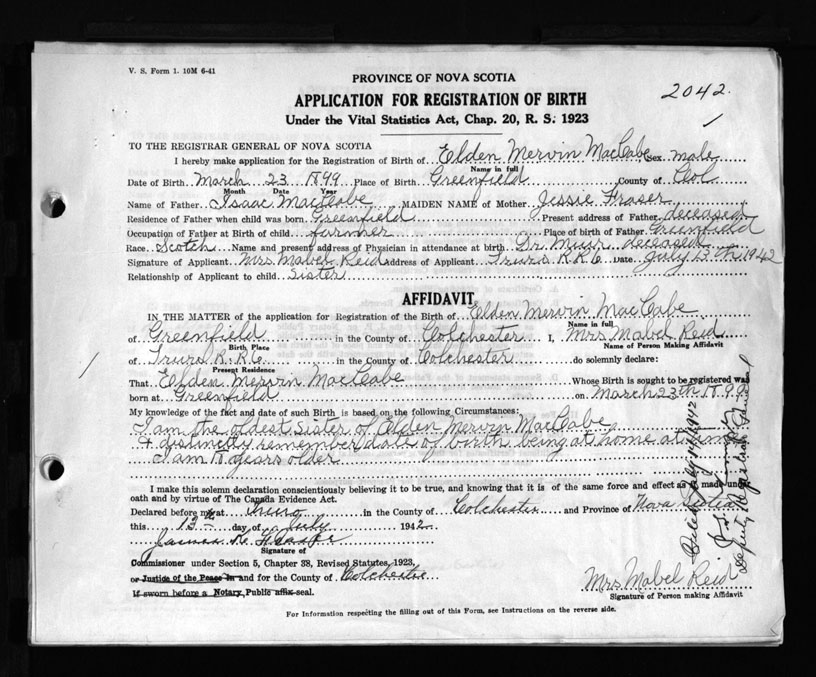 V. S. Form 1. 10M 6-41
PROVINCE OF NOVA SCOTIA
2042.
APPLICATION FOR REGISTRATION OF BIRTH
Under the Vital Statistics Act, Chap. 20, R. S. 1923
TO THE REGISTRAR GENERAL OF NOVA SCOTIA
I hereby make application for the Registration of Birth of Elden Mervin MacCabe Sex male
Name in full
Date of Birth March 23 1899 Place of Birth Greenfield County of Col.
Month Date Year
Name of Father Isaac MacCabe MAIDEN NAME of Mother Jessie Fraser
Residence of Father when child was born Greenfield Present address of Father deceased
Occupation of Father at Birth of child farmer Place of birth of Father Greenfield
Race Scotch Name and present address of Physician in attendance at birth Dr. Muir deceased
Signature of Applicant Mrs Mabel Reid Address of Applicant Truro R.R.6 Date July 13th 1942
Relationship of Applicant to child sister
AFFIDAVIT
IN THE MATTER of the application for Registration of the Birth of Elden Mervin MacCabe
Name in full
of Greenfield in the County of Colchester I, Mrs Mabel Reid
Birth Place Name of Person Making Affidavit
of Truro R.R.6. in the County of Colchester do solemnly declare:
Present Residence
That Elden Mervin MacCabe Whose Birth is sought to be registered was
born at Greenfield on March 23th 1899
My knowledge of the fact and date of such Birth is based on the following Circumstances:
I am the oldest sister of Elden Mervin MacCabe,
& distinctly remember date of birth being at home at time
I am years older
I make this solemn declaration conscientiously believing it to be true, and knowing that it is of the same force and effect as if made under
oath and by virtue of The Canada Evidence Act.
Declared before me at Truro in the County of Colchester and Province of Nova Scotia
this 13 day of July 1942
James
Signature of
Commissioner under Section 5, Chapter 38, Revised Statutes, 1923,
or Justice of the Peace in and for the County of Colchester
if sworn before a Notary Public affix seal.
Mrs Mabel Reid
Signature of Person making Affidavit
For Information respecting the filling out of this Form, see Instructions on the reverse side.
Filed July 1942
Deputy Registrar General